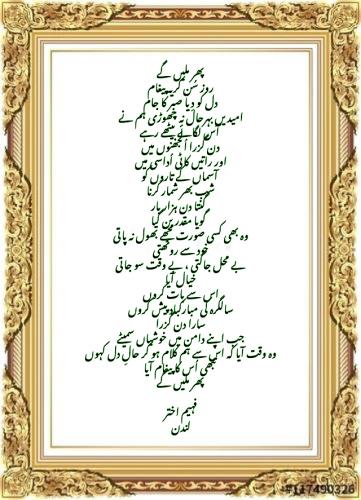 پھر ملیں گے
روز سُن کر یہ پیغام
دل کو دِیا صبر کا جام
امیدیں بہرحال نہ چھوڑی ہم نے
آس لگائے بیٹھے رہے
دن گزرا اُلجھنوں میں
اور راتیں کاٹی اُداسی میں
آسماں کے تاروں کو
شب بھر شمار کرنا
گنتا دن ہزار بار
گویا مقدر بن گیا
وہ بھی کسی صورت مجھے بھول نہ پاتی
خود سے روٹھتی
بے محل جاگتی ، بے وقت سو جاتی
خیال آیا
اس سے بات کروں
سالگرہ کی مبارکباد پیش کروں
سارا دن گزرا
جب اپنے دامن میں خوشیاں سمیٹے
وہ وقت آیا کہ اس سے ہم کلام ہو کر حالِ دل کہوں
تبھی اُس کا پیغام آیا
پھر ملیں گے
فہیم اختر
لندن
#117490326